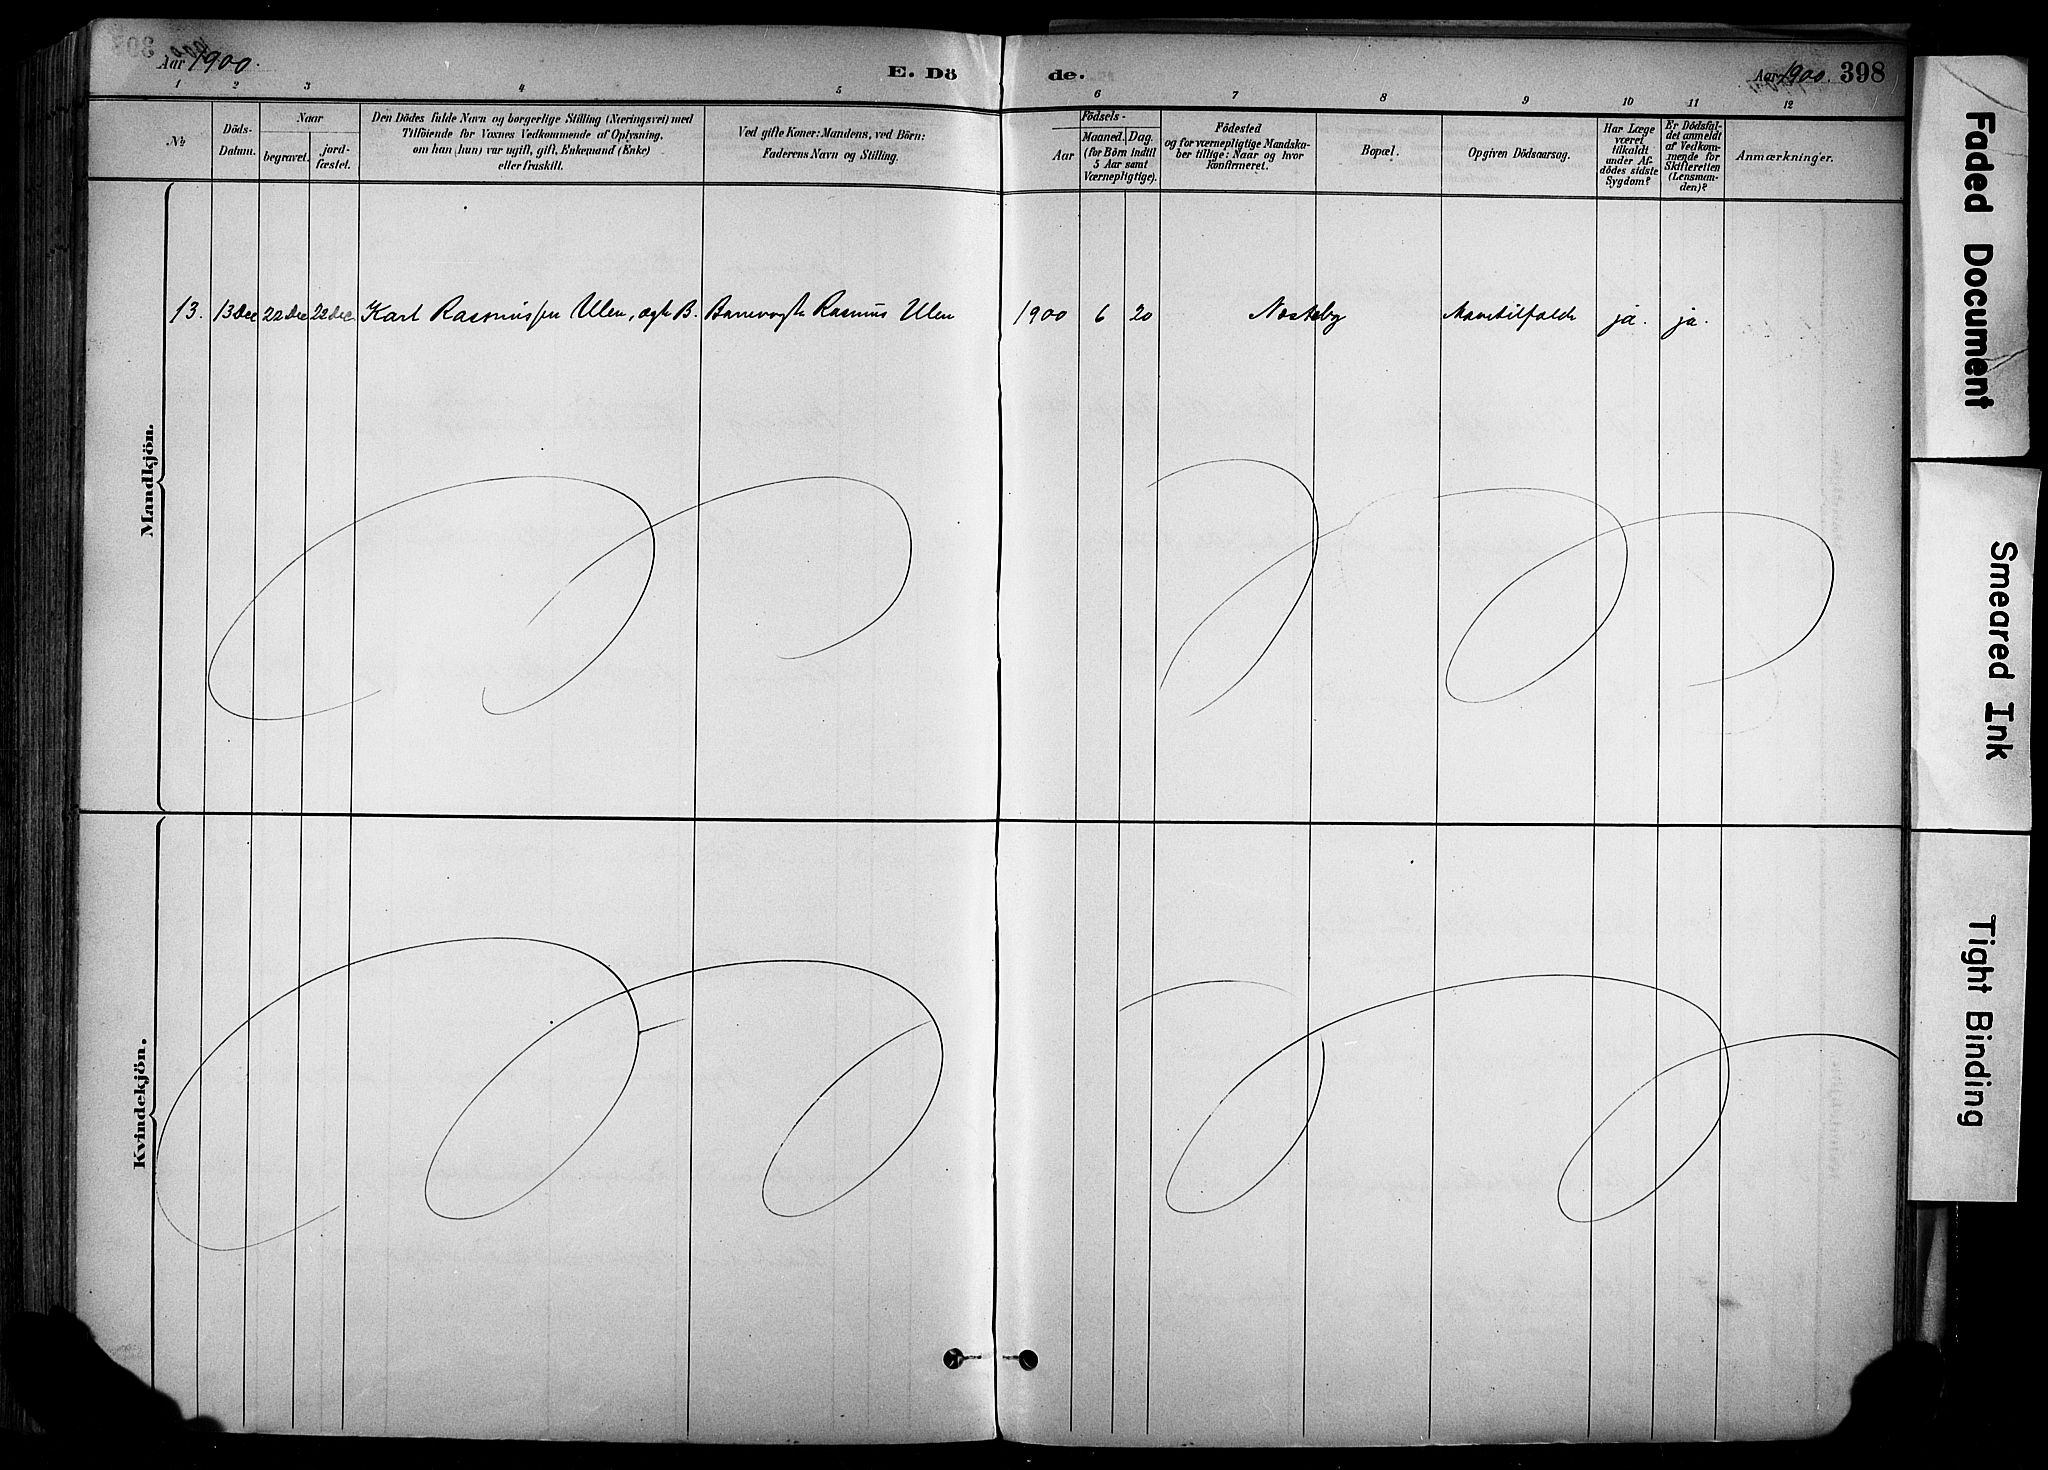 Aar 1900.
E. Dö
de.
Aar 1900. 398
1 2 3 4 5 6 7 8 9 10 11 12
№
Döds-
Datum.
Naar
begravet.
jord-
fæstet.
Den Dödes fulde Navn og borgerlige Stilling (Næringsvei) med
Tilföiende for Voxnes Vedkommende af Oplysning,
om han (hun) var ugift, gift, Enkemand (Enke)
eller fraskilt.
Ved gifte Koner: Mandens, ved Börn:
Faderens Navn og Stilling.
Födsels-
Aar
Maaned. Dag.
(for Börn indtil
5 Aar samt
Værnepligtige).
Födested
og for værnepligtige Mandska-
ber tillige: Naar og hvor
konfirmeret.
Bopæl.
Opgiven Dödsaarsag.
Har Læge
været
tilkaldt
under Af-
dödes sidste
Sygdom?
Er Dödsfal-
det anmeldt
af Vedkom-
mende for
Skifteretten
(Lensman-
den)?
Anmærkninger.
Mandkjön.
13. 13 Dec 22 Dec 22 Dec. Karl Rasmussen Ulen, ægte B. Banevogte Rasmus Ulen 1900 6 20 Næsteby Mavetilfælde ja. ja.
Kvindekjön.
Faded Document
Smeared Ink
Tight Binding